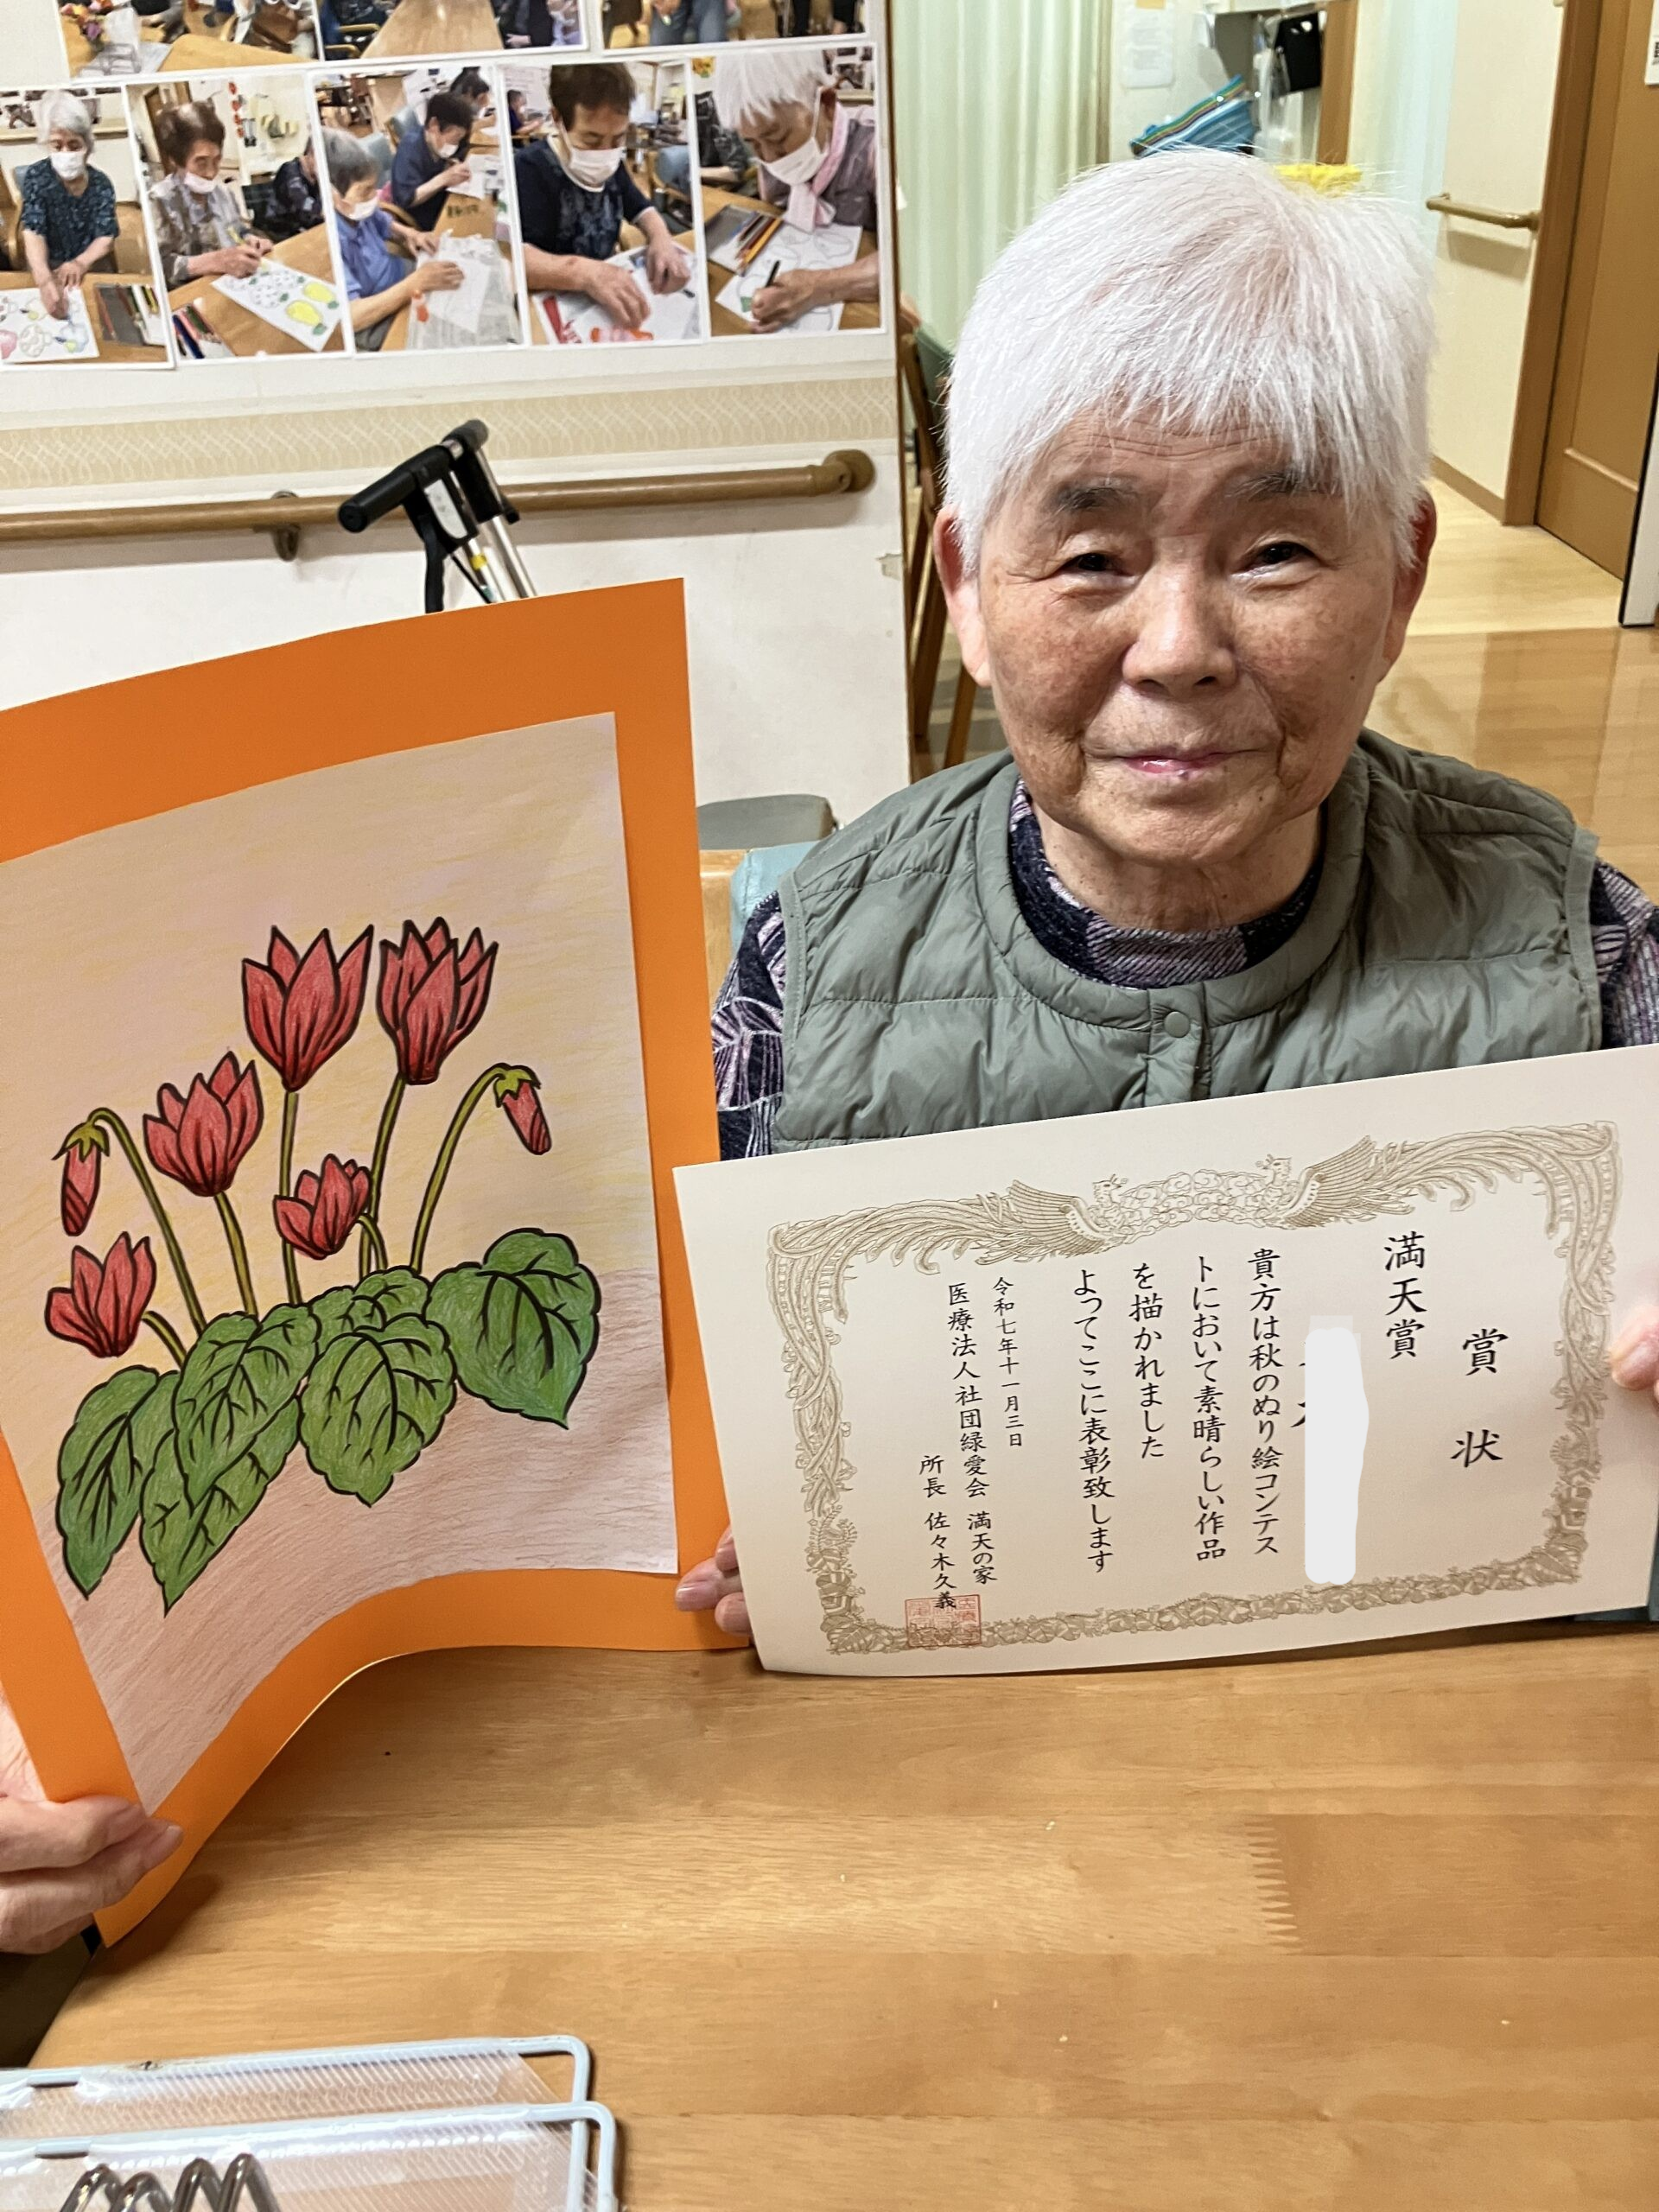 賞状
満天賞
貴方は秋のぬり絵コンテス
トにおいて素晴らしい作品
を描かれました
よってここに表彰致します
令和七年十一月三日
医療法人社団緑愛会 満天の家
所長 佐々木久義